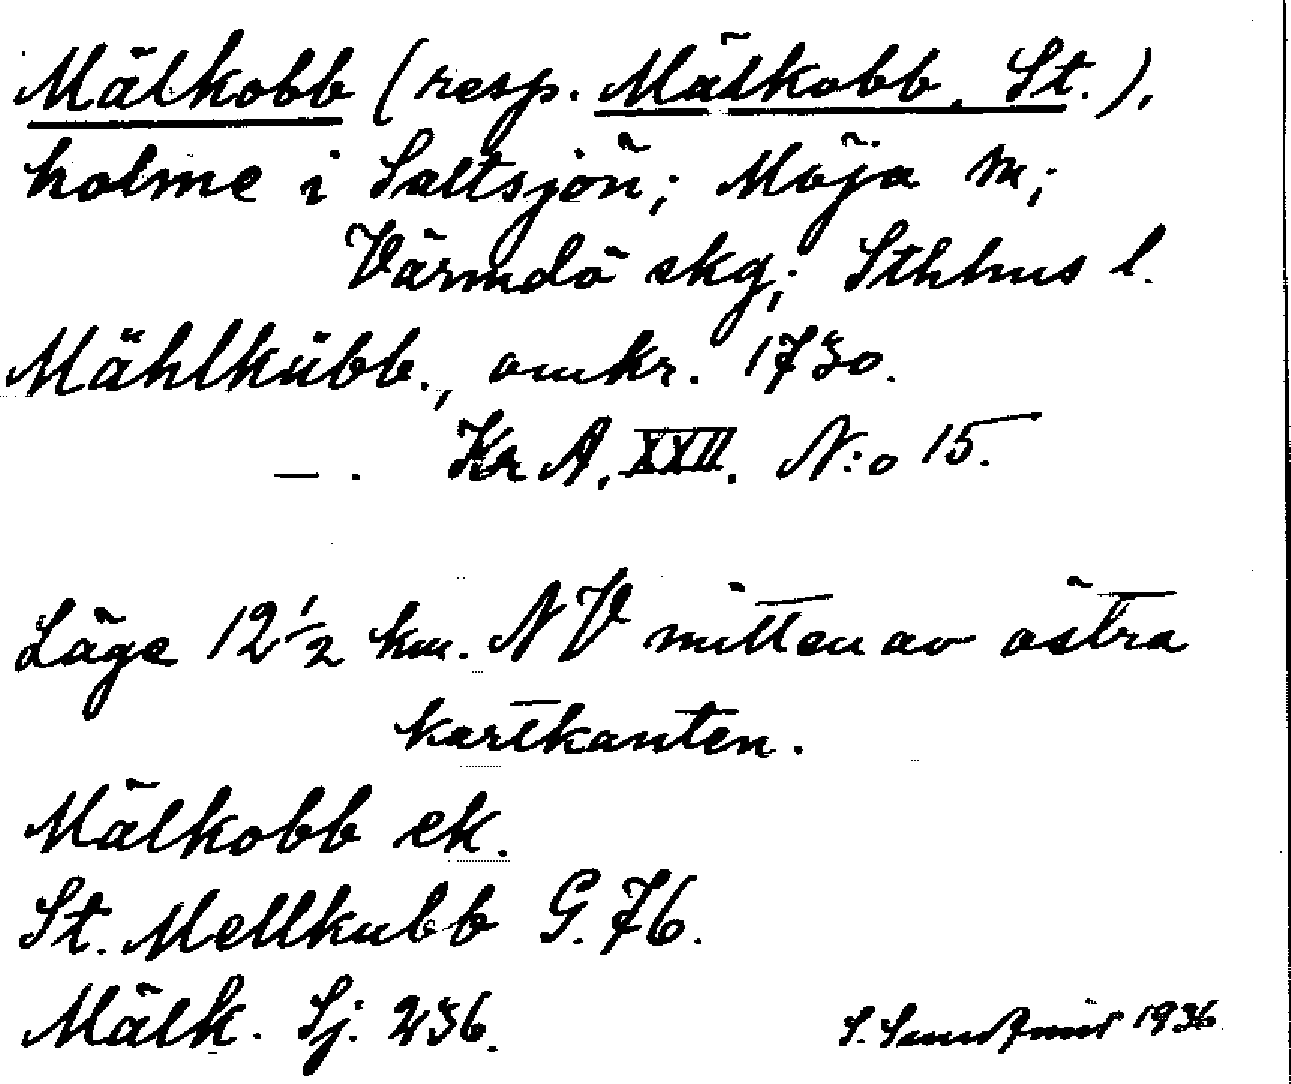 Mälkobb (resp. Mälkobb, St.),
holme i Saltsjön; Möja sn;
Värmdö skg; Sthlms l.
Mählkübb., omkr. 1730.
— . Kr A. XXII. N:o 15.
Läge 12 1/2 km. NV mitten av östra
kartkanten.
Mälkobb ek.
St. Mellkubb G. 76.
Mälk. Sj. 236.
S. 1936